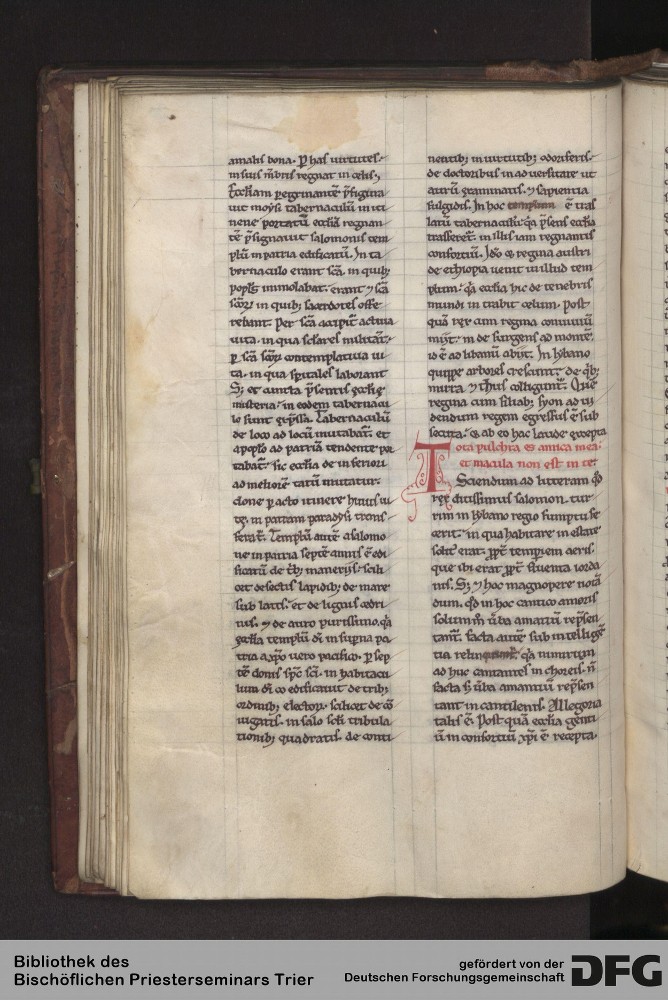 amalis bona. P has uirtutes.
in suis mbris regnat in celis.
Eccliam peregrinante pfigura
uit moysi tabernaculu in iti
nere portatu eccliā regnan
tē psignauit salomonis tem
plu in patria edificatu. In ta
bernaculo erant scā. in quib;
popls immolabat. erant 7 scā
scōr in quib; sacerdotes offe
rebant. Per scā accipit actiua
uita. in qua sclares militāt.
p scā scōr contemplatiua ui
ta. in qua spitales laborant
S; et cuncta psentis gcclie
misteria. in eodem tabernacu
lo sunt exp̄ssa. Tabernaculū
de loco ad locū mutabat. et
a poplo ad patriā tendente por
tabat. sic ecclia de inferiori
ad meliorē tatū mutatur.
donec pacto itinere huius ui
te. in patriam paradysi trans
ferat. Templū autē a salomo
ne in patria septē annis ē edi
ficatū de trib; manerijs. scili
cet de sectis lapidib; de mare
sub latis. et de lignis cedri
nis. 7 de auro purissimo. qa
gcclia templū di in supna pa
tria a xpo uero pacifico. p sep
tē donis spc sci. in habitacu
lum di eo edificatur de trib;
ordinib; elector. scilicet de cō
iugatis. in salo scli tribula
tionib; quadratis. de conti
nentib; in uirtutib; odoriferis.
de doctorib; in aduersitate ut
aurū examinatis. 7 sapientia
fulgidis. In hoc templum ē tras
latū tabernaculū. qa psens ecclia
trasferet. in illis iam regnantis
confortiū. Ido 7 regina austri
de ethiopia uenit in illud tem
plum. qa ecclia hic de tenebris
mundi intrabit celum. Post
quā rex cum regina conuiuiū
iniit. inde surgens ad montē.
id ē ad libanū abiit. In lybano
quippe arbores crescunt. de qb;
mirra 7 thus colliguntr. Quē
regina cum filiab; syon ad ui
dendum regem egressus ē sub
secuta. 7 ab eo hac laude excepta
Tota pulchra es amica mea.
et macula non est in te.
Sciendum ad litteram qd
rex ditissimus salomon. tur
rim in lybano regio sumptu fe
cerit. in qua habitare in estate
solit erat. ppt temperiem aeris.
que ibi erat ppt fluenta iorda
nis. S; 7 hoc magnopere notā
dum. qd in hoc cantico amoris
solumm uba amantiū repsen
tant. facta autē sub intelligē
tia relinquunt. qa nimirum
ad huc cantantes in choreis. n
facta s; uba amantiū repsen
tant in cantilenis. Allegoria
talis ē. Post quā ecclia genti
ū in consortiū xpi ē recepta.
Bibliothek des
Bischöflichen Priesterseminars Trier
gefördert von der
Deutschen Forschungsgemeinschaft
DFG